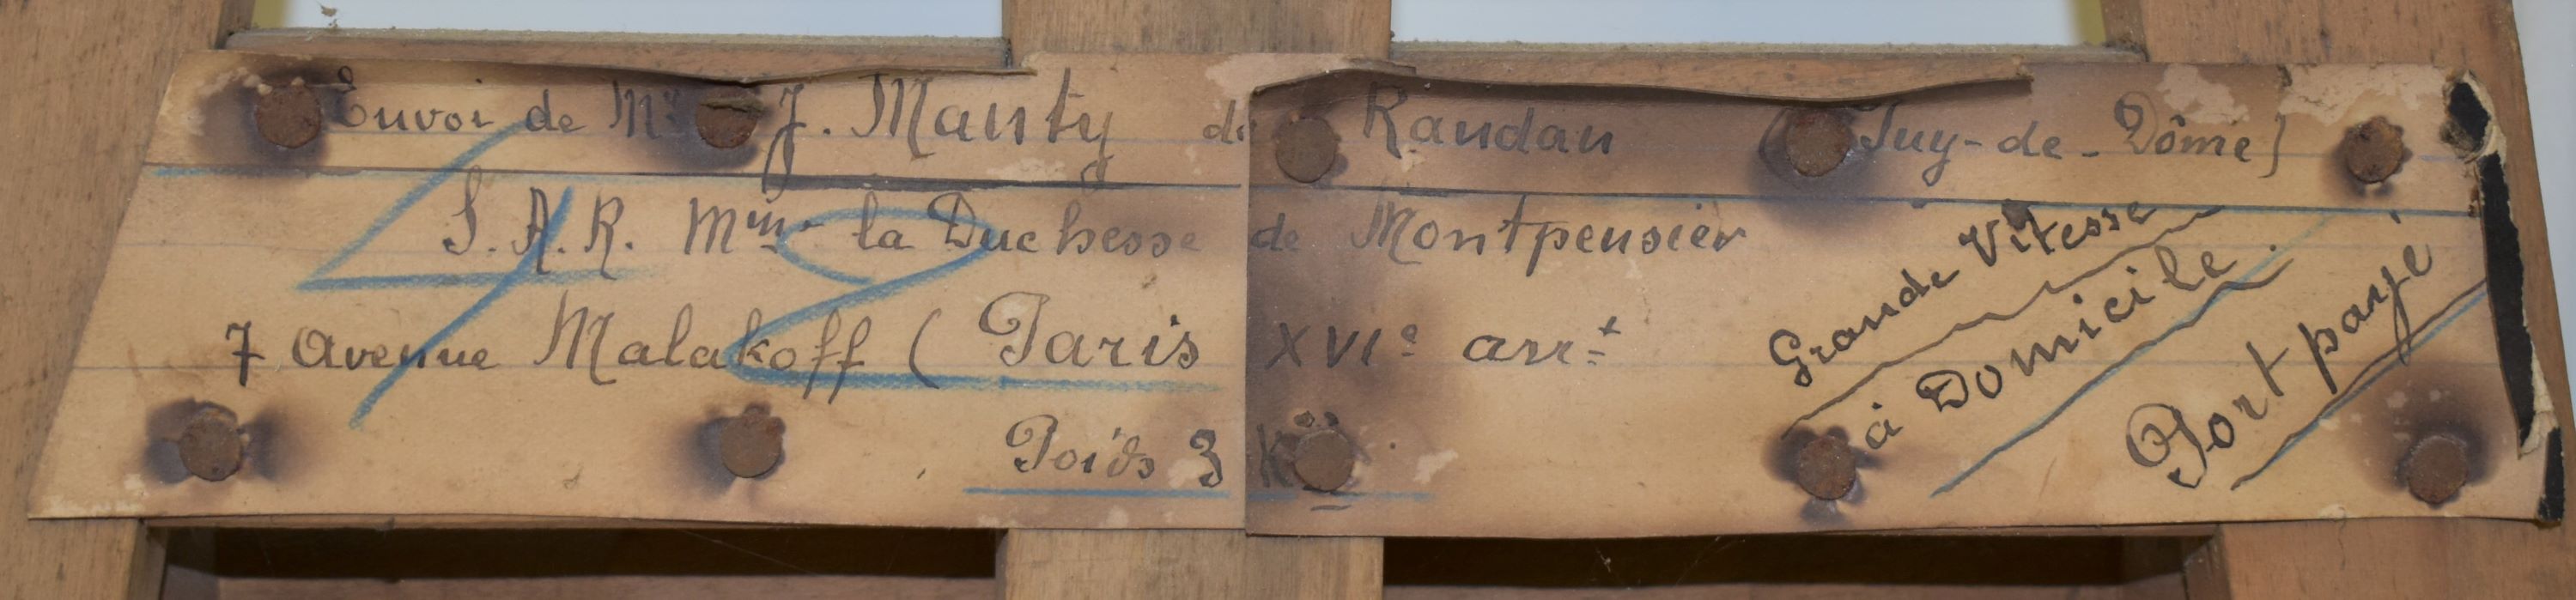 Envoi de Mr J. Manty de Randan (Puy-de-Dôme)
S. A. R. Mme la Duchesse de Montpensier
7 avenue Malakoff ( Paris XVIe arrt
Poids 3 K
Grande Vitesse
à Domicile.
Port payé
42